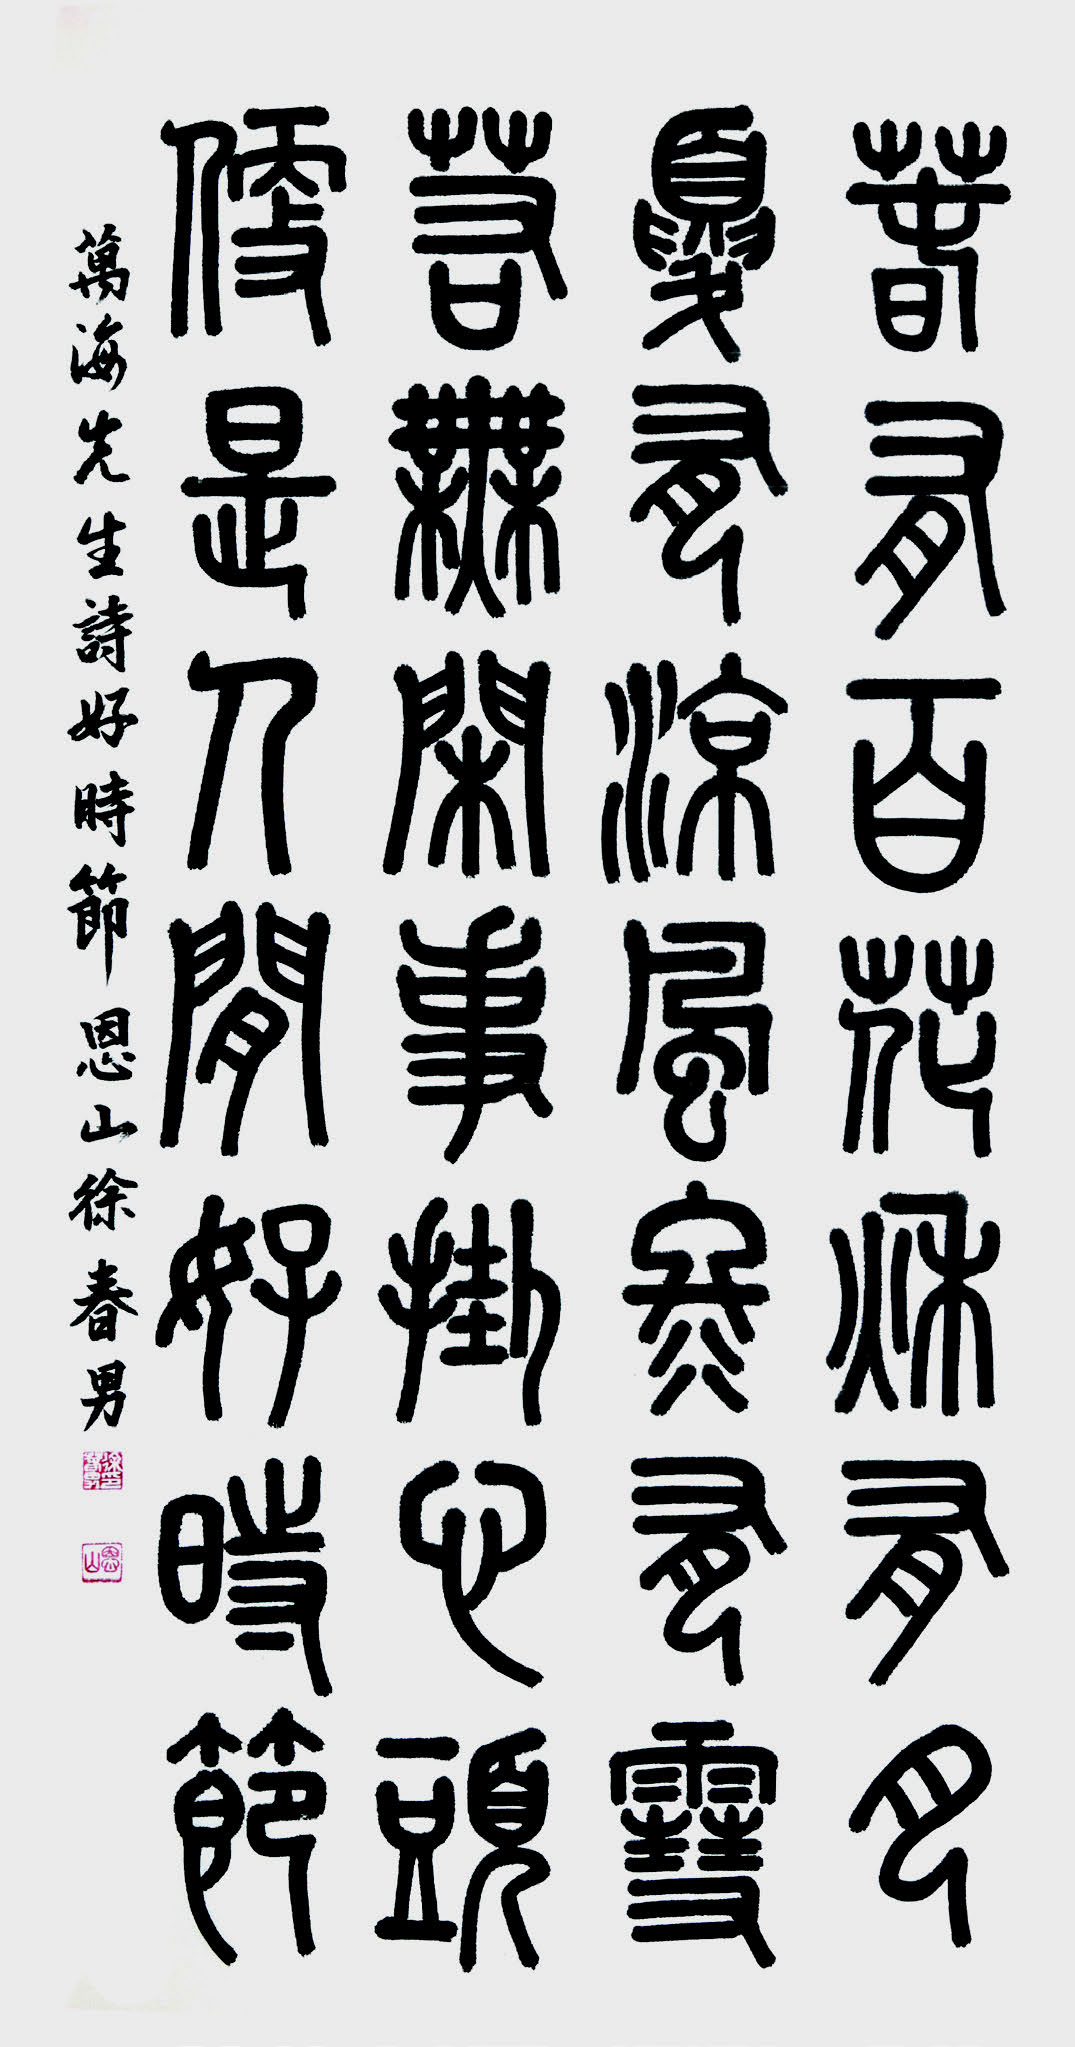 春有百花秋有月
夏有涼風冬有雪
若無閑事掛心頭
便是人閒好時節
萬海先生詩好時節 恩山徐春男
徐印春男
恩山